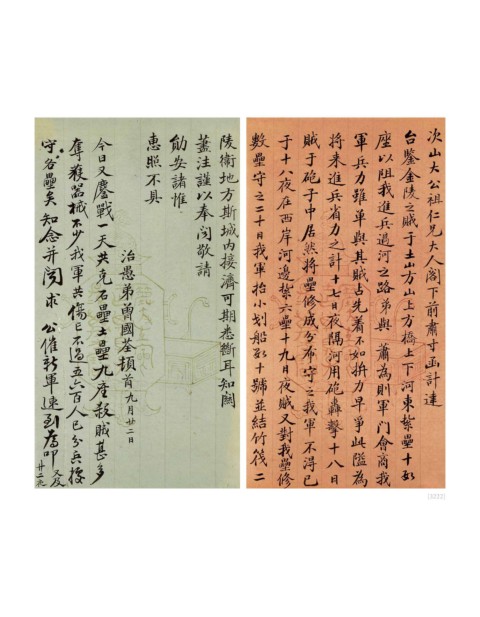 次山大公祖仁兄大人閣下前肅寸函計達
台鑒金陵之賊于土山方山上方橋上下河東紮壘十餘
座以阻我進兵過河之路弟與 蕭為則軍門會商我
軍兵力雖單與其賊占先着不如拚力早爭此隘為
將來進兵省力之計十七日夜隔河用砲轟擊十八日
賊于砲子中居然將壘修成分布守之我軍不得已
于十八夜在西岸河邊紮六壘十九日夜賊又對我壘修
數壘守之二十日我軍抬小划船數十號並結竹筏二
陵衛地方斯城內接濟可期悉斷耳知關
藎注謹以奉聞敬請
勛安諸惟
惠照不具
治愚弟曾國荃頓首 九月廿二日
今日又鏖戰一天共克石壘土壘九座殺賊甚多
奪獲器械不少我軍共傷亡不過五六百人已分兵
守各壘矣 知念并聞求 公催新軍速到為叩 又及
廿二亥
[3222]